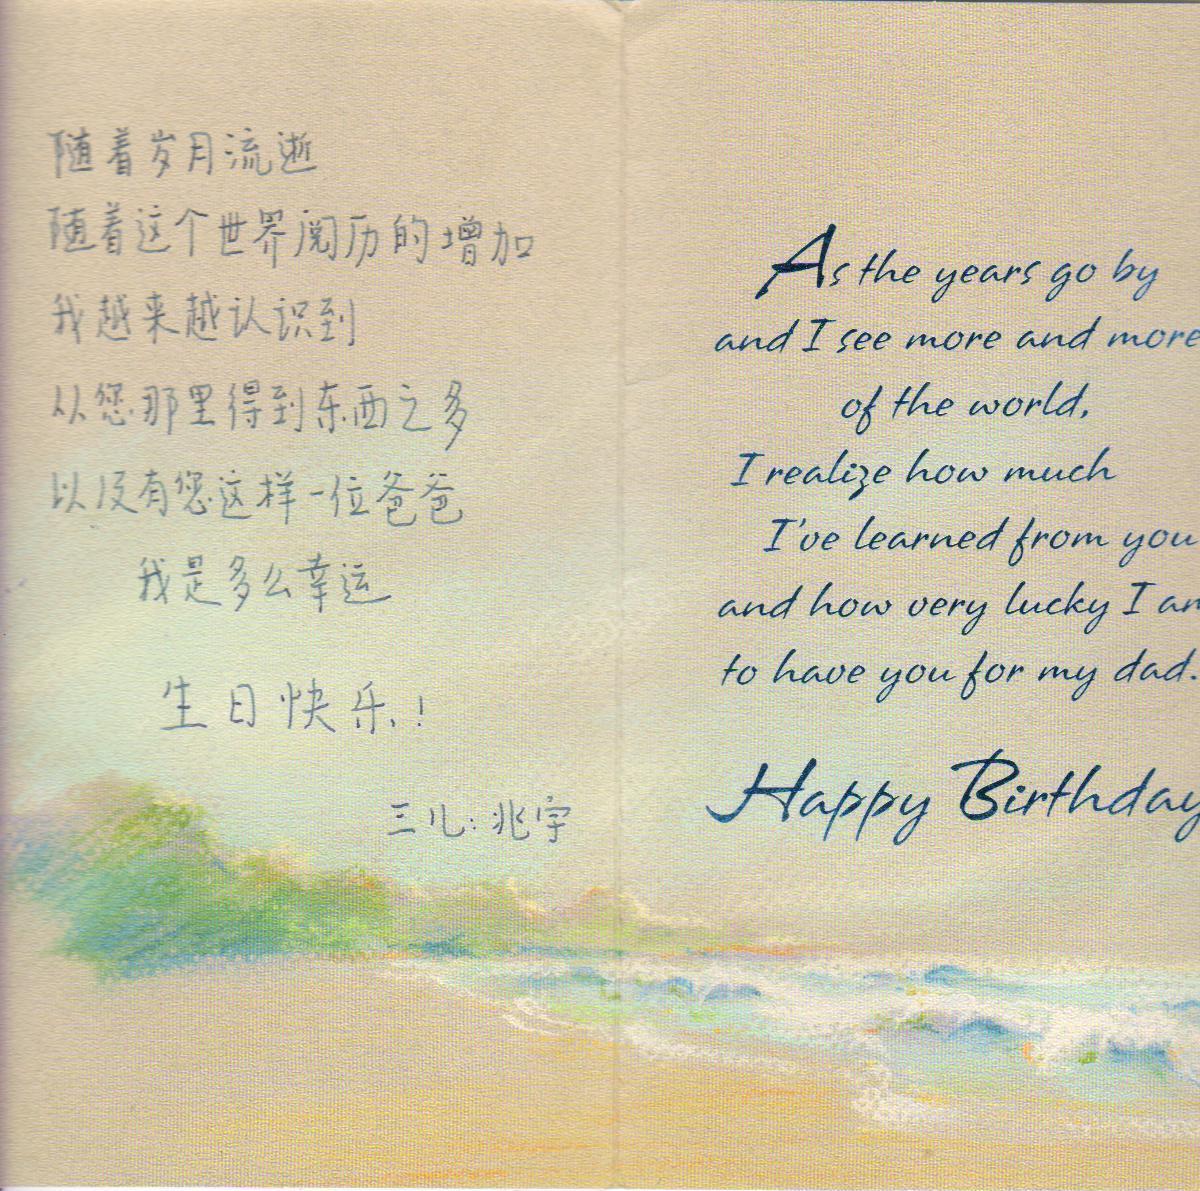 随着岁月流逝
随着这个世界阅历的增加
我越来越认识到
从您那里得到东西之多
以及有您这样一位爸爸
我是多么幸运
生日快乐!
三儿:兆宇
As the years go by
and I see more and more
of the world,
I realize how much
I've learned from you
and how very lucky I am
to have you for my dad.
Happy Birthday